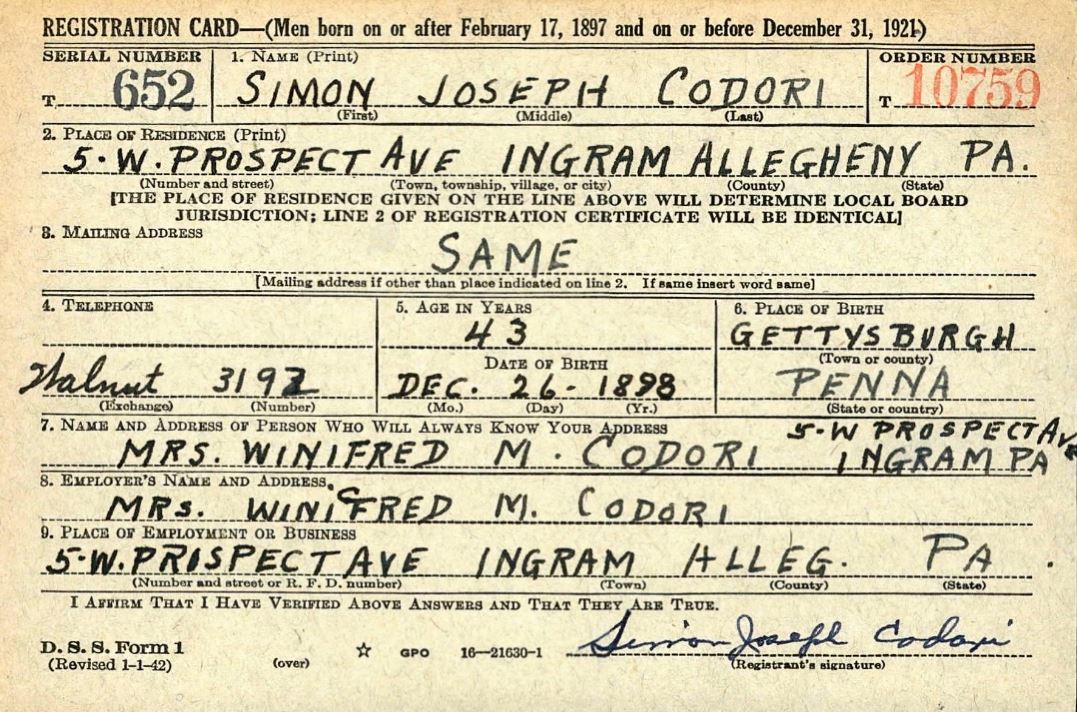 REGISTRATION CARD—(Men born on or after February 17, 1897 and on or before December 31, 1921)
SERIAL NUMBER 1. NAME (Print) ORDER NUMBER
T 652 SIMON JOSEPH CODORI T 10759
(First) (Middle) (Last)
2. PLACE OF RESIDENCE (Print)
5·W. PROSPECT AVE INGRAM ALLEGHENY PA.
(Number and street) (Town, township, village, or city) (County) (State)
[THE PLACE OF RESIDENCE GIVEN ON THE LINE ABOVE WILL DETERMINE LOCAL BOARD
JURISDICTION; LINE 2 OF REGISTRATION CERTIFICATE WILL BE IDENTICAL]
3. MAILING ADDRESS
SAME
[Mailing address if other than place indicated on line 2. If same insert word same]
4. TELEPHONE 5. AGE IN YEARS 6. PLACE OF BIRTH
43 GETTYSBURGH
DATE OF BIRTH (Town or county)
Walnut 3192 DEC. 26- 1898 PENNA
(Exchange) (Number) (Mo.) (Day) (Yr.) (State or country)
7. NAME AND ADDRESS OF PERSON WHO WILL ALWAYS KNOW YOUR ADDRESS 5-W PROSPECT AVE
MRS. WINIFRED M. CODORI INGRAM PA
8. EMPLOYER'S NAME AND ADDRESS
MRS. WINIFRED M. CODORI
9. PLACE OF EMPLOYMENT OR BUSINESS
5-W. PROSPECT AVE INGRAM ALLEG. PA.
(Number and street or R. F. D. number) (Town) (County) (State)
I AFFIRM THAT I HAVE VERIFIED ABOVE ANSWERS AND THAT THEY ARE TRUE.
D. S. S. Form 1 Simon Joseph Codori
(Revised 1-1-42) (over) ☆ GPO 16—21630-1 (Registrant's signature)